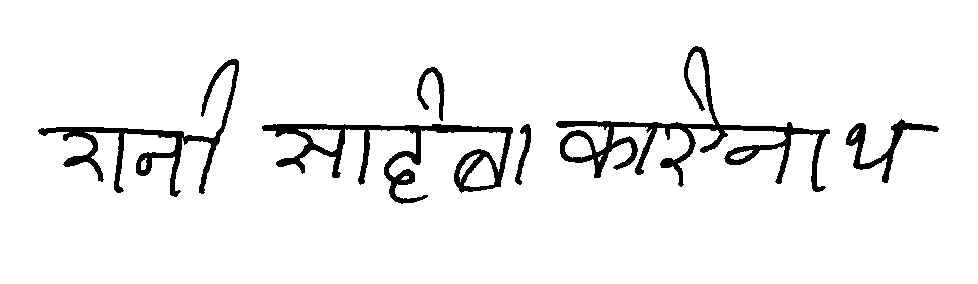 रानी साहिबा कारेनाथ